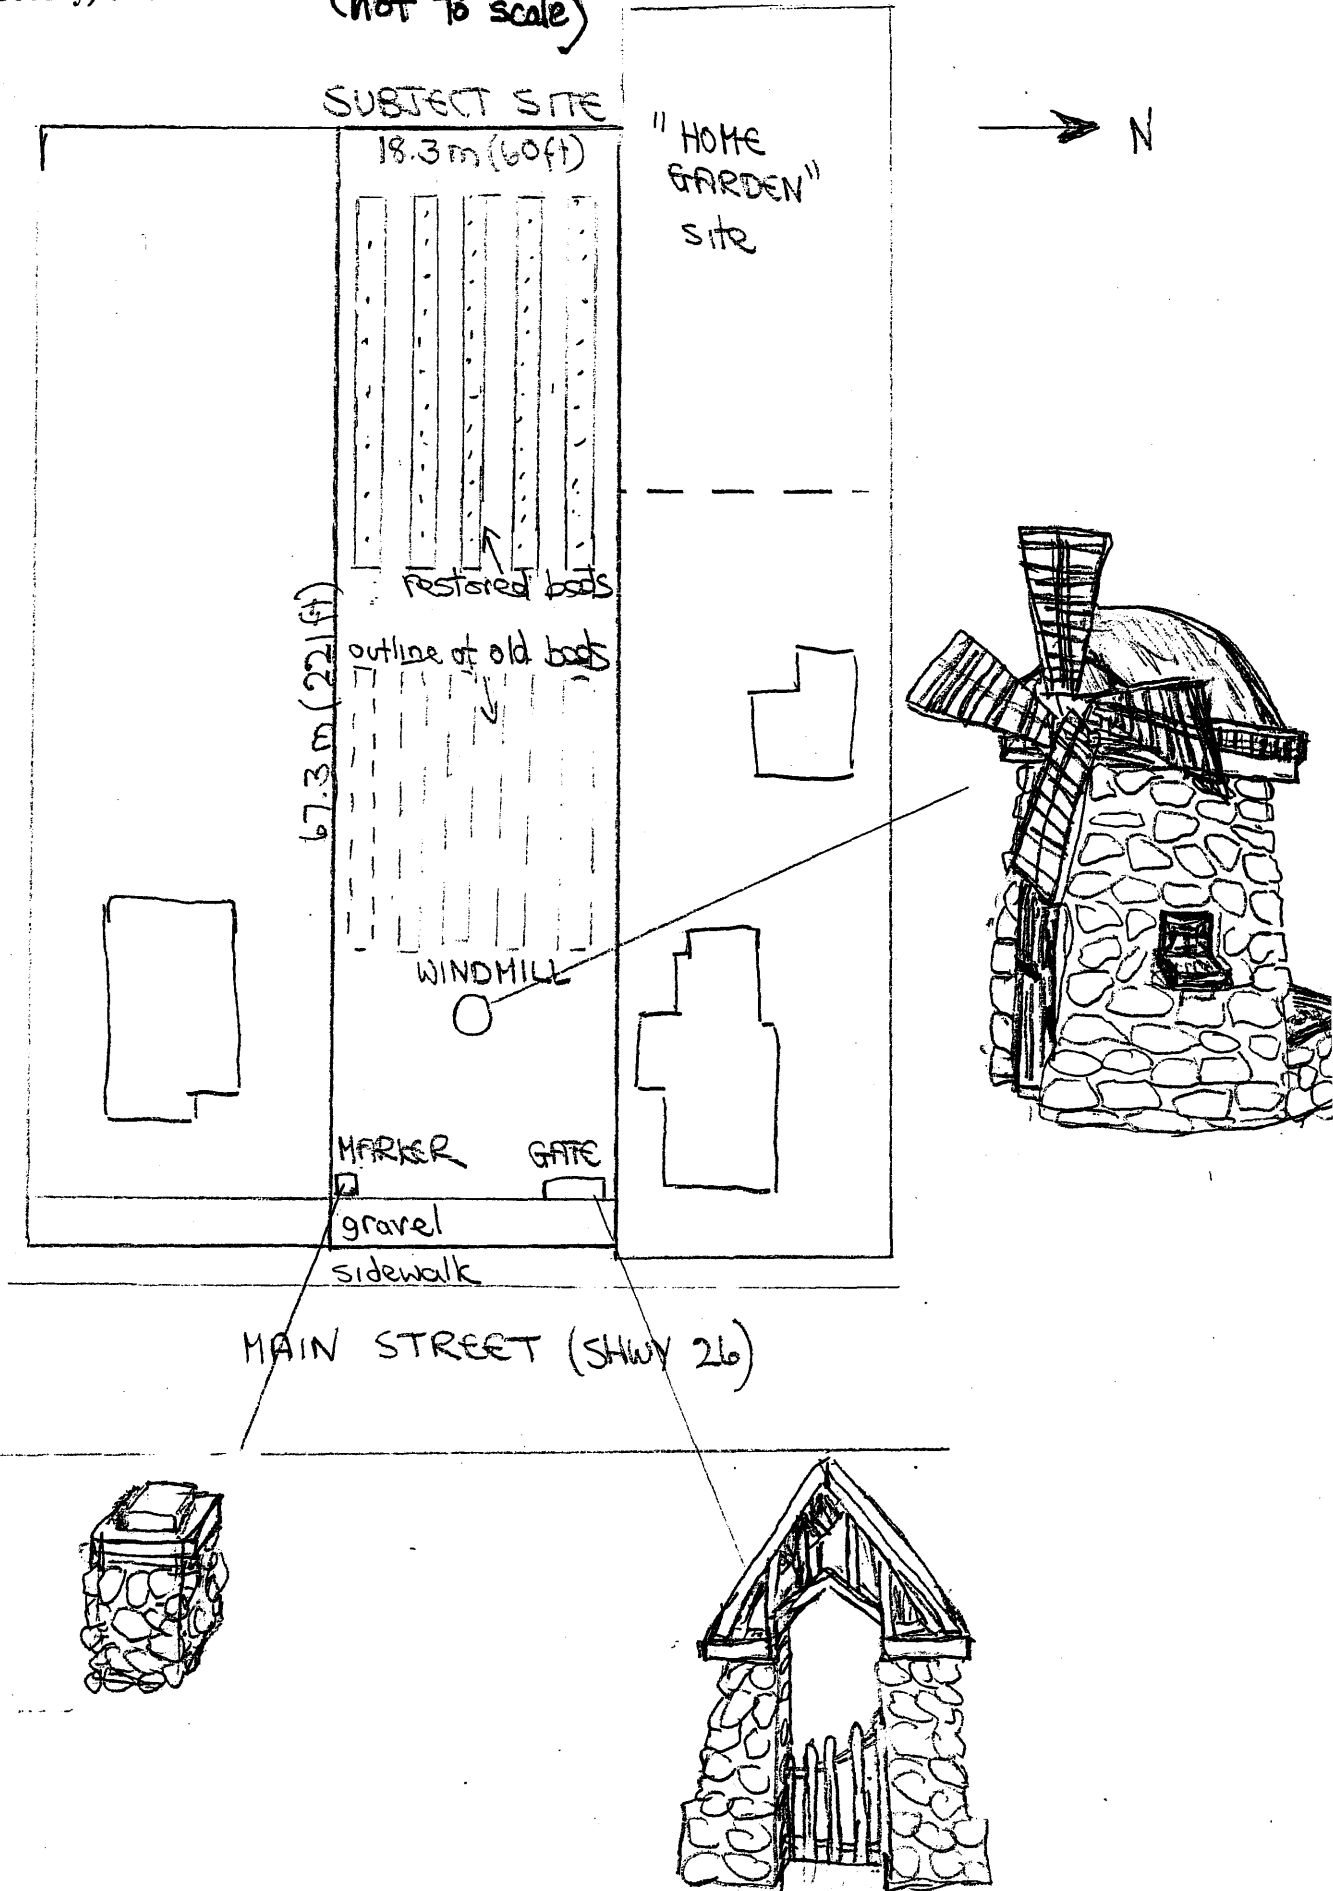 (not to scale)
SUBJECT SITE
18.3m (60ft)
"HOME
GARDEN"
site
N
restored beds
outline of old beds
67.3 m (221 ft)
WINDMILL
MARKER
GATE
gravel
sidewalk
MAIN STREET (SHWY 26)